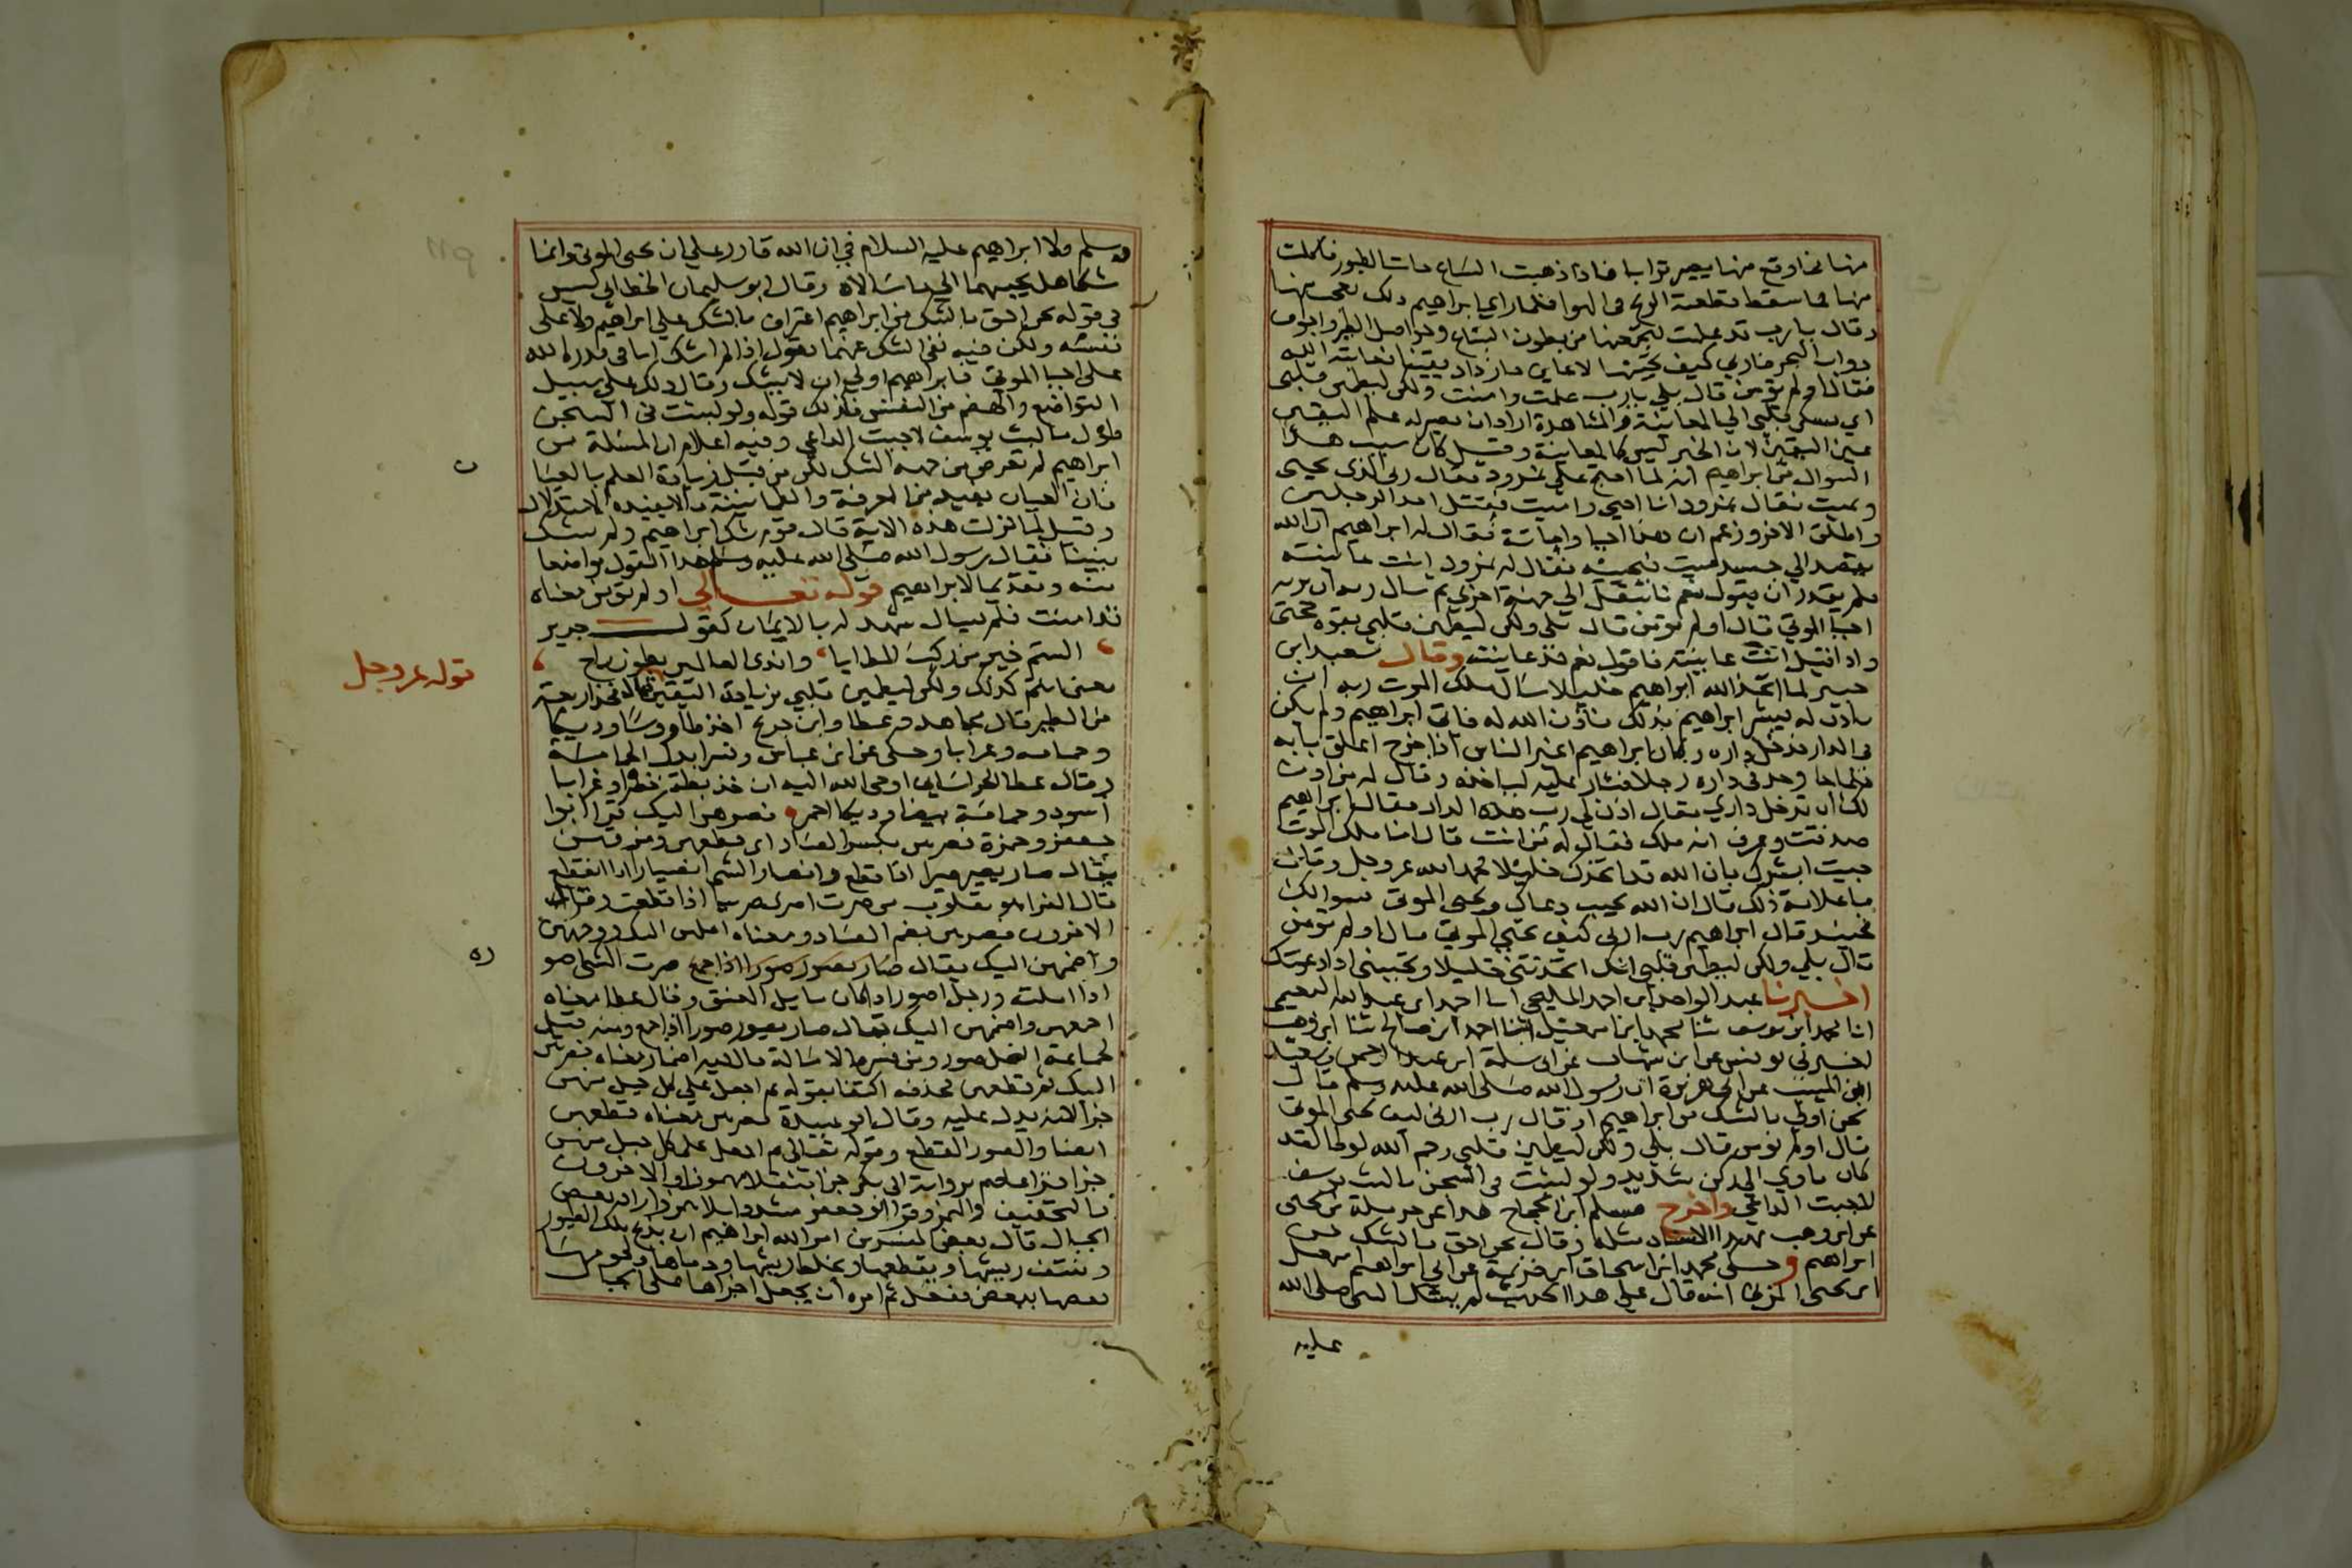 منها فما وقع منها يصير ترابا فاذا ذهبت السباع جات الطيور فاكلت
منها فما سقط قطعته الريح في الهوا فلما راي ابراهيم ذلك تعجب منها
وقال يا رب قد علمت لتجمعنها من بطون السباع وحواصل الطير واجواف
دواب البحر فارني كيف تحييها لاعاين فازداد يقينا فعاتبه الله
فقال اولم تؤمن قال بلي يا رب علمت وامنت ولكن ليطمئن قلبي
اي يسكن قلبي الي المعاينة والمشاهدة اراد ان يصير له علم اليقين
عين اليقين لان الخبر ليس كالمعاينة وقيل كان سبب هذا
السوال من ابراهيم انه لما احتج علي نمرود فقال ربي الذي يحيي
ويميت فقال نمرود انا احيي واميت فقتل احد الرجلين
واطلق الاخر وزعم ان هذا احيا واماتة فقال له ابراهيم ان الله
يقصد الي جسد ميت فيحييه فقال له نمرود انت عاينته
فلم يقدر ان يقول نعم فانتقل الي حجة اخري ثم سال ربه ان يريه
احيا الموتي قال اولم تؤمن قال بلي ولكن ليطمئن قلبي بقوة حجتي
واذا قيل انت عاينته فاقول نعم قد عاينت وقال سعيد ابن
جبير لما اتخذ الله ابراهيم خليلا سال ملك الموت ربه ان
ياذن له ليبشر ابراهيم بذلك فاذن الله له فاتي ابراهيم ولم يكن
في الدار فدخل داره وكان ابراهيم اغير الناس اذا خرج اغلق بابه
فلما جا وجد في داره رجلا فثار عليه لياخذه وقال له من اذن
لك ان تدخل داري فقال اذن لي رب هذه الدار فقال ابراهيم
صدقت وعرف انه ملك فقال له من انت قال انا ملك الموت
جيت ابشرك بان الله قد اتخذك خليلا فحمد الله عز وجل وقال
ما علامة ذلك قال ان الله يجيب دعاك ويحيي الموتي بسوالك
فحينئذ قال ابراهيم رب ارني كيف تحيي الموتي قال اولم تؤمن
قال بلي ولكن ليطمئن قلبي انك اتخذتني خليلا وتجيبني اذا دعوتك
اخبرنا عبد الواحد ابن احمد المليحي انا احمد ابن عبد الله النعيمي
انا محمد ابن يوسف ثنا محمد ابن اسمعيل ثنا احمد ابن صالح ثنا ابن وهب
اخبرني يونس عن ابن شهاب عن ابي سلمة ابن عبد الرحمن وسعيد
ابن المسيب عن ابي هريرة ان رسول الله صلي الله عليه وسلم قال
نحن اولي بالشك من ابراهيم اذ قال رب ارني كيف تحيي الموتي
قال اولم تؤمن قال بلي ولكن ليطمئن قلبي رحم الله لوطا لقد
كان ياوي الي ركن شديد ولو لبثت في السجن ما لبث يوسف
لاجبت الداعي واخرج مسلم ابن الحجاج هذا عن حرملة بن يحيي
عن ابن وهب بهذا الاسناد مثله وقال نحن احق بالشك من
ابراهيم وحكي محمد ابن اسحاق ابن خزيمة عن ابي ابراهيم اسمعيل
ابن يحيي المزني انه قال علي هذا الحديث لم يشك النبي صلي الله
عليه
وسلم ولا ابراهيم عليه السلام في ان الله قادر علي ان يحيي الموتي وانما
شكا هل يجيبهما الي ما سالاه وقال ابو سليمان الخطابي ليس
في قوله نحن احق بالشك من ابراهيم اعتراف بالشك علي ابراهيم ولا علي
نفسه ولكن فيه نفي الشك عنهما يقول اذا لم اشك انا في قدرة الله
علي احيا الموتي فابراهيم اولي ان لا يشك وقال ذلك علي سبيل
التواضع والهضم من النفس فكذلك قوله ولو لبثت في السجن
طول ما لبث يوسف لاجبت الداعي وفيه اعلام ان المسئلة من
ابراهيم لم تعرض من جهة الشك لكن من قبل زيادة العلم بالعيا
فان العيان يفيد من المعرفة والطمانينة ما لا يفيده الاستدلال
وقيل لما نزلت هذه الاية قال قوم شك ابراهيم ولم يشك
نبينا فقال رسول الله صلي الله عليه وسلم هذا القول تواضعا
منه وتقديما لابراهيم قوله تعالي اولم تؤمن معناه
قد امنت فلم تسال شهد له بالايمان كقول جرير
الستم خير من ركب المطايا واندي العالمين بطون راح
يعني انتم كذلك ولكن ليطمئن قلبي بزيادة اليقين قال فخذ اربعة
من الطير قال مجاهد وعطا وابن جريج اخذ طاووسا وديكا
وحمامة وغرابا وحكي عن ابن عباس ونسرا بدل الحمامة
وقال عطا الخراساني اوحي الله اليه ان خذ بطة خضرا وغرابا
اسود وحمامة بيضا وديكا احمر فصرهن اليك قرا ابو
جعفر وحمزة فصرهن بكسر الصاد اي قطعهن ومزقهن
يقال صار يصير صيرا اذا قطع وانصار الشي انصيارا اذا انقطع
قال الفرا هو مقلوب من صرت اصري صريا اذا قطعت وقرا
الاخرون فصرهن بضم الصاد ومعناه املهن اليك ووجههن
واضممهن اليك يقال صار يصور صورا اذا جمع صرت الشي اصو
اذا املت ورجل اصور اذا كان مايل العنق وقال عطا معناه
اجمعهن واضممهن اليك يقال صار يصور صورا اذا جمع ومنه قيل
لجماعة النخل صور ومن فسره بالامالة فالفيه اضمار معناه فصرهن
اليك ثم قطعهن فحذفه اكتفا بقوله ثم اجعل علي كل جبل منهن
جزا لانه يدل عليه وقال ابو عبيدة فصرهن معناه قطعهن
ايضا والصور القطع وقوله تعالي ثم اجعل علي كل جبل منهن
جزا قرا عاصم برواية ابي بكر جزا مثقلا مهموزا والاخرون
بالتخفيف والهمز وقرا ابو جعفر مشددا بلا همز واراد بعض
الجبال قال بعض المفسرين امر الله ابراهيم ان يذبح تلك الطيور
وينتف ريشها ويقطعها ويخلط ريشها ودماها ولحومها
بعضها ببعض ففعل ثم امره ان يجعل اجزاها علي الجبال
قوله عز وجل